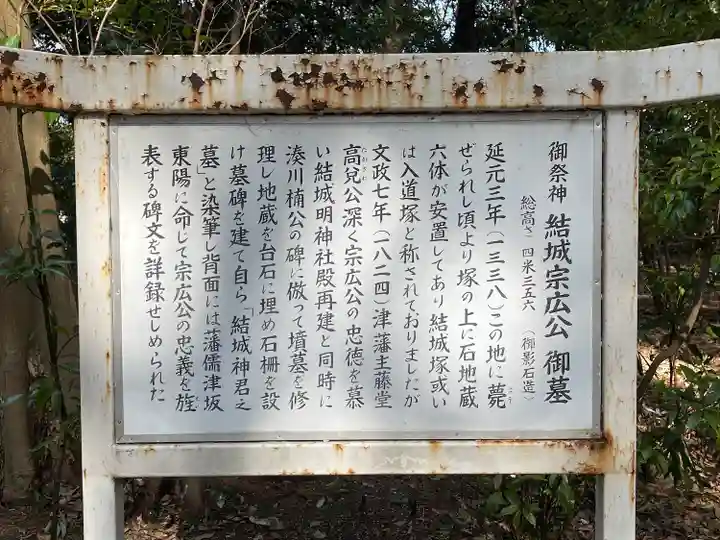 御祭神 結城宗広公 御墓
総高さ 四米三五六 （御影石造）
延元三年（一三三八）この地に薨
こう
ぜられし頃より塚の上に石地蔵
六体が安置してあり結城塚或い
は入道塚と称されておりましたが
文政七年（一八二四）津藩主藤堂
高兌公深く宗広公の忠徳を慕
たかさわ
い結城明神社殿再建と同時に
湊川楠公の碑に倣って墳墓を修
理し地蔵を台石に埋め石柵を設
け墓碑を建て自ら「結城神君之
墓」と染筆し背面には藩儒津坂
東陽に命じて宗広公の忠義を旌
表する碑文を詳録せしめられた